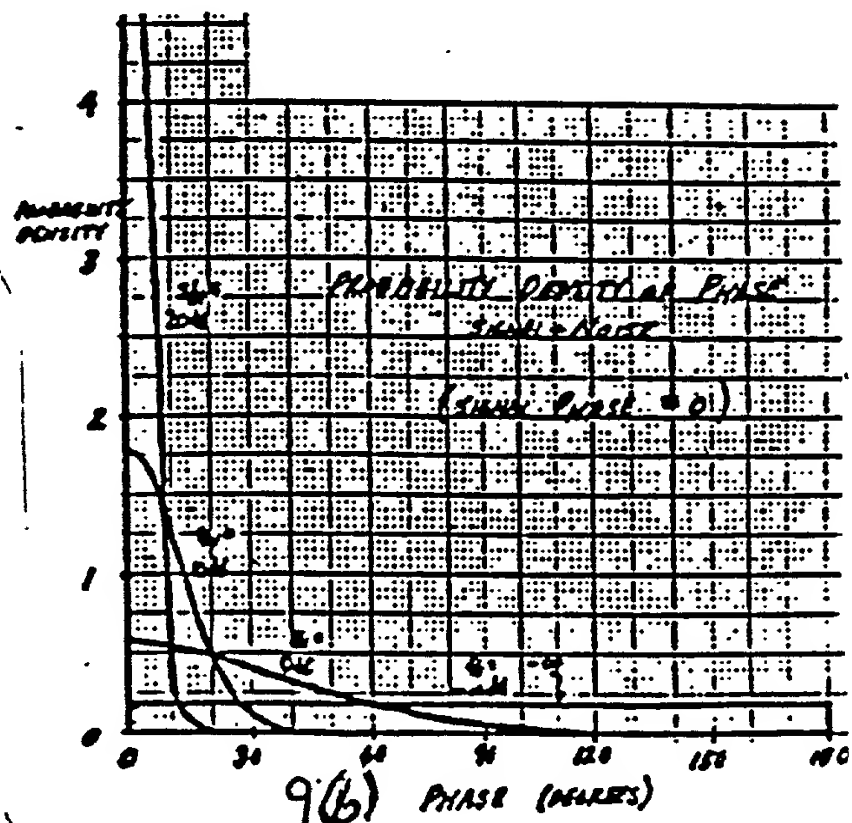 4
PROBABILITY
DENSITY
3
PROBABILITY DENSITY OF PHASE
20db
SIGNAL + NOISE
(SIGNAL PHASE = 0)
2
1
0db
0
0 30 60 90 120 150 180
9(b) PHASE (DEGREES)